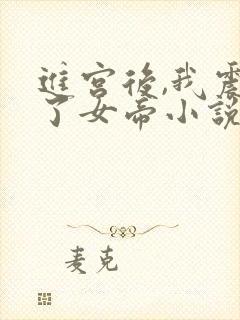 進宮後,我震
了女帝小說
麦克